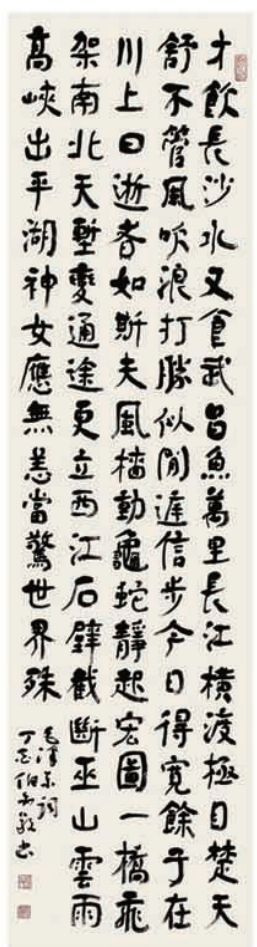 才飲長沙水又食武昌魚萬里長江橫渡極目楚天
舒不管風吹浪打勝似閒庭信步今日得寬餘子在
川上曰逝者如斯夫風檣動龜蛇靜起宏圖一橋飛
架南北天塹變通途更立西江石壁截斷巫山雲雨
高峽出平湖神女應無恙當驚世界殊
毛澤東詞